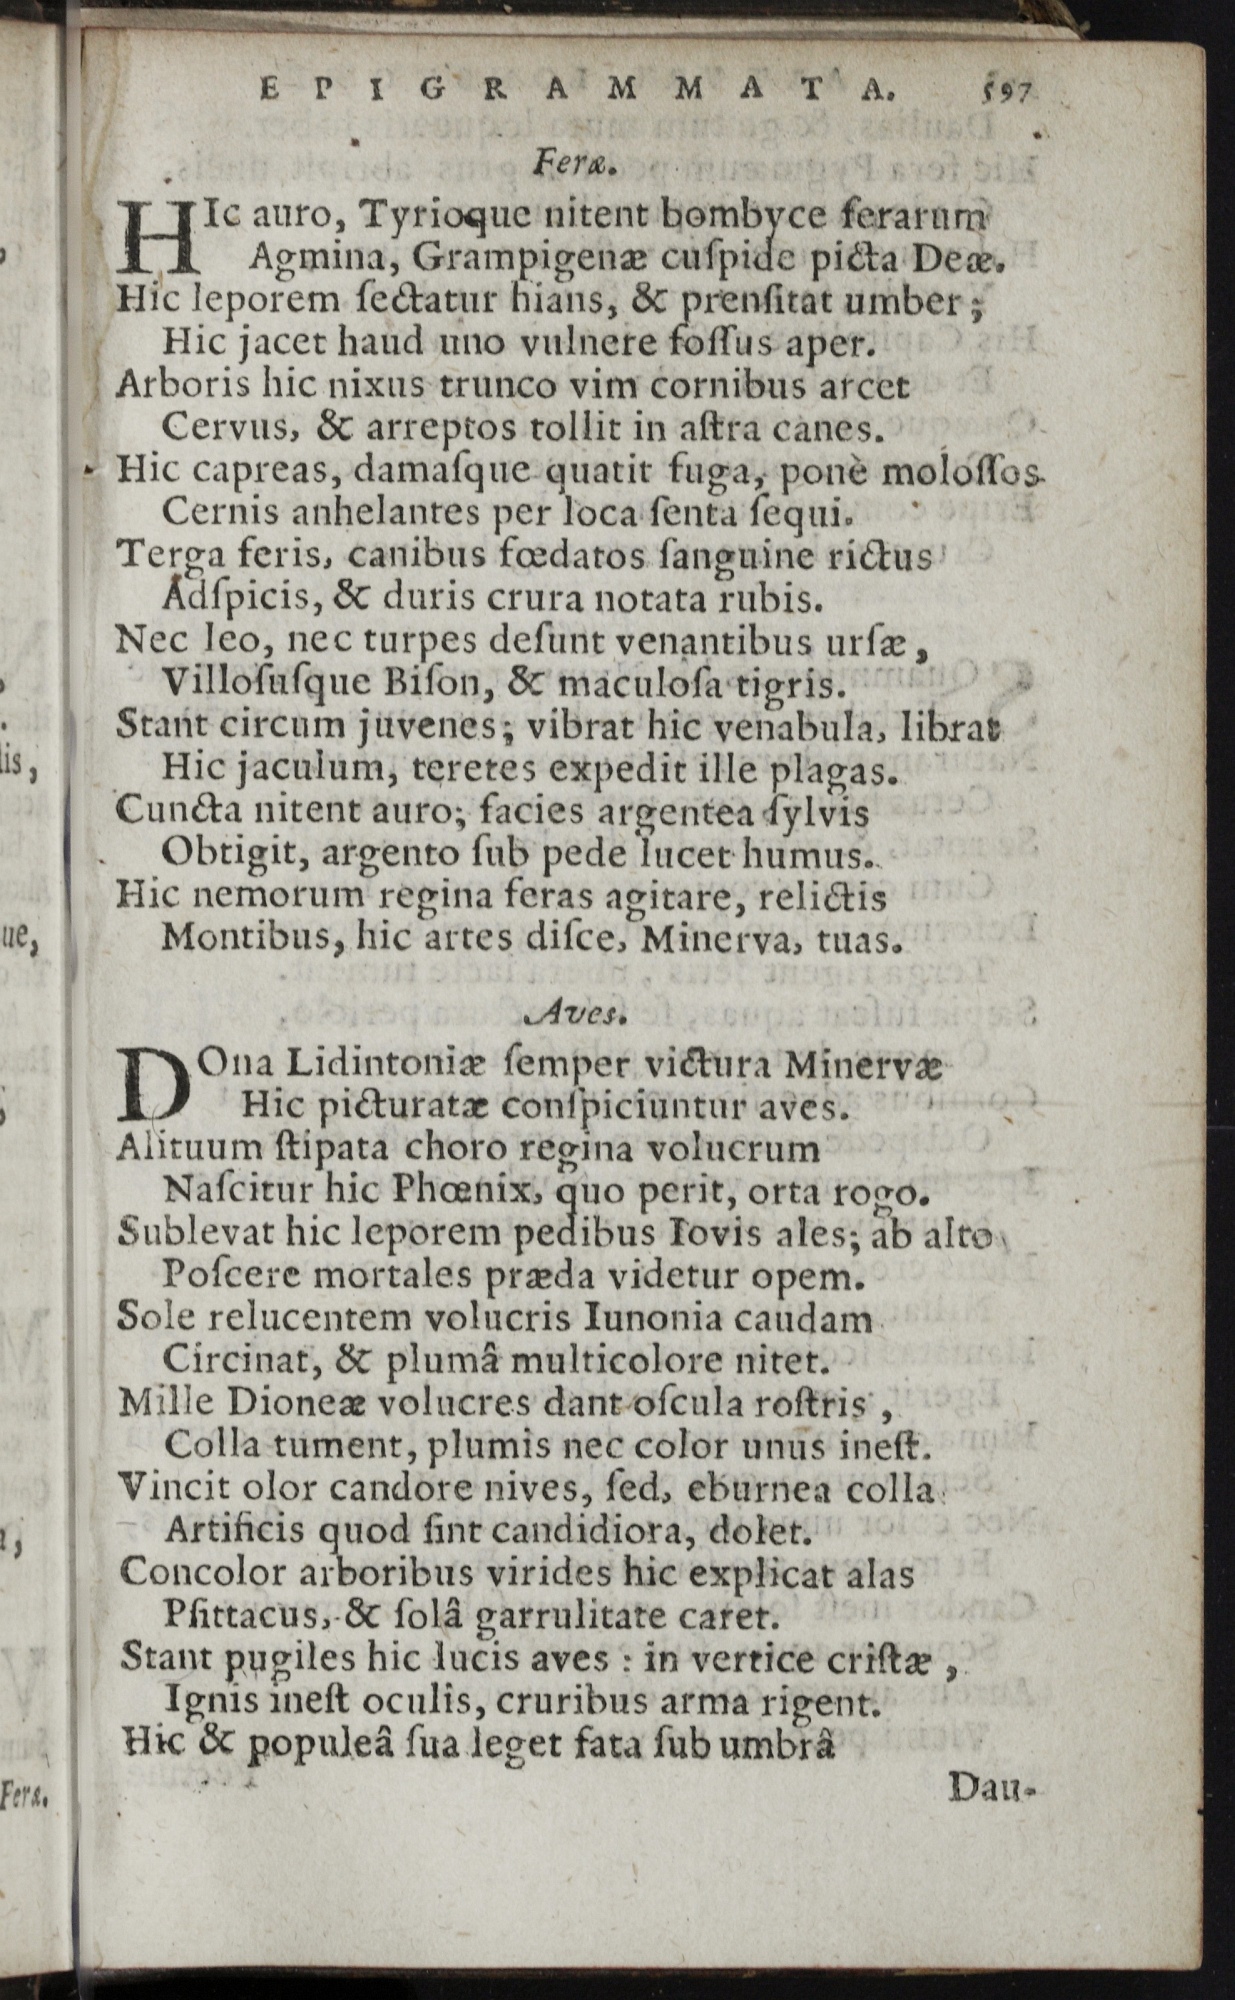 EPIGRAMMATA. 597
Feræ.
HIc auro, Tyrioque nitent bombyce ferarum
Agmina, Grampigenæ cuſpide picta Deæ.
Hic leporem ſectatur hians, & prenſitat umber;
Hic jacet haud uno vulnere foſſus aper.
Arboris hic nixus trunco vim cornibus arcet
Cervus, & arreptos tollit in aſtra canes.
Hic capreas, damaſque quatit fuga, ponè moloſſos
Cernis anhelantes per loca ſenta ſequi.
Terga feris, canibus fœdatos ſanguine rictus
Adſpicis, & duris crura notata rubis.
Nec leo, nec turpes deſunt venantibus urſæ,
Villoſuſque Biſon, & maculoſa tigris.
Stant circum juvenes; vibrat hic venabula, librat
Hic jaculum, teretes expedit ille plagas.
Cuncta nitent auro; facies argentea ſylvis
Obtigit, argento ſub pede lucet humus.
Hic nemorum regina feras agitare, relictis
Montibus, hic artes diſce, Minerva, tuas.
Aves.
DOna Lidintoniæ ſemper victura Minervæ
Hic picturatæ conſpiciuntur aves.
Alituum ſtipata choro regina volucrum
Naſcitur hic Phœnix, quo perit, orta rogo.
Sublevat hic leporem pedibus Iovis ales; ab alto
Poſcere mortales præda videtur opem.
Sole relucentem volucris Iunonia caudam
Circinat, & plumâ multicolore nitet.
Mille Dioneæ volucres dant oſcula roſtris,
Colla tument, plumis nec color unus ineſt.
Vincit olor candore nives, ſed, eburnea colla
Artificis quod ſint candidiora, dolet.
Concolor arboribus virides hic explicat alas
Pſittacus, & ſolâ garrulitate caret.
Stant pugiles hic lucis aves : in vertice criſtæ,
Ignis ineſt oculis, cruribus arma rigent.
Hic & populeâ ſua leget fata ſub umbrâ
Dau-
lis,
ue,
Feræ.